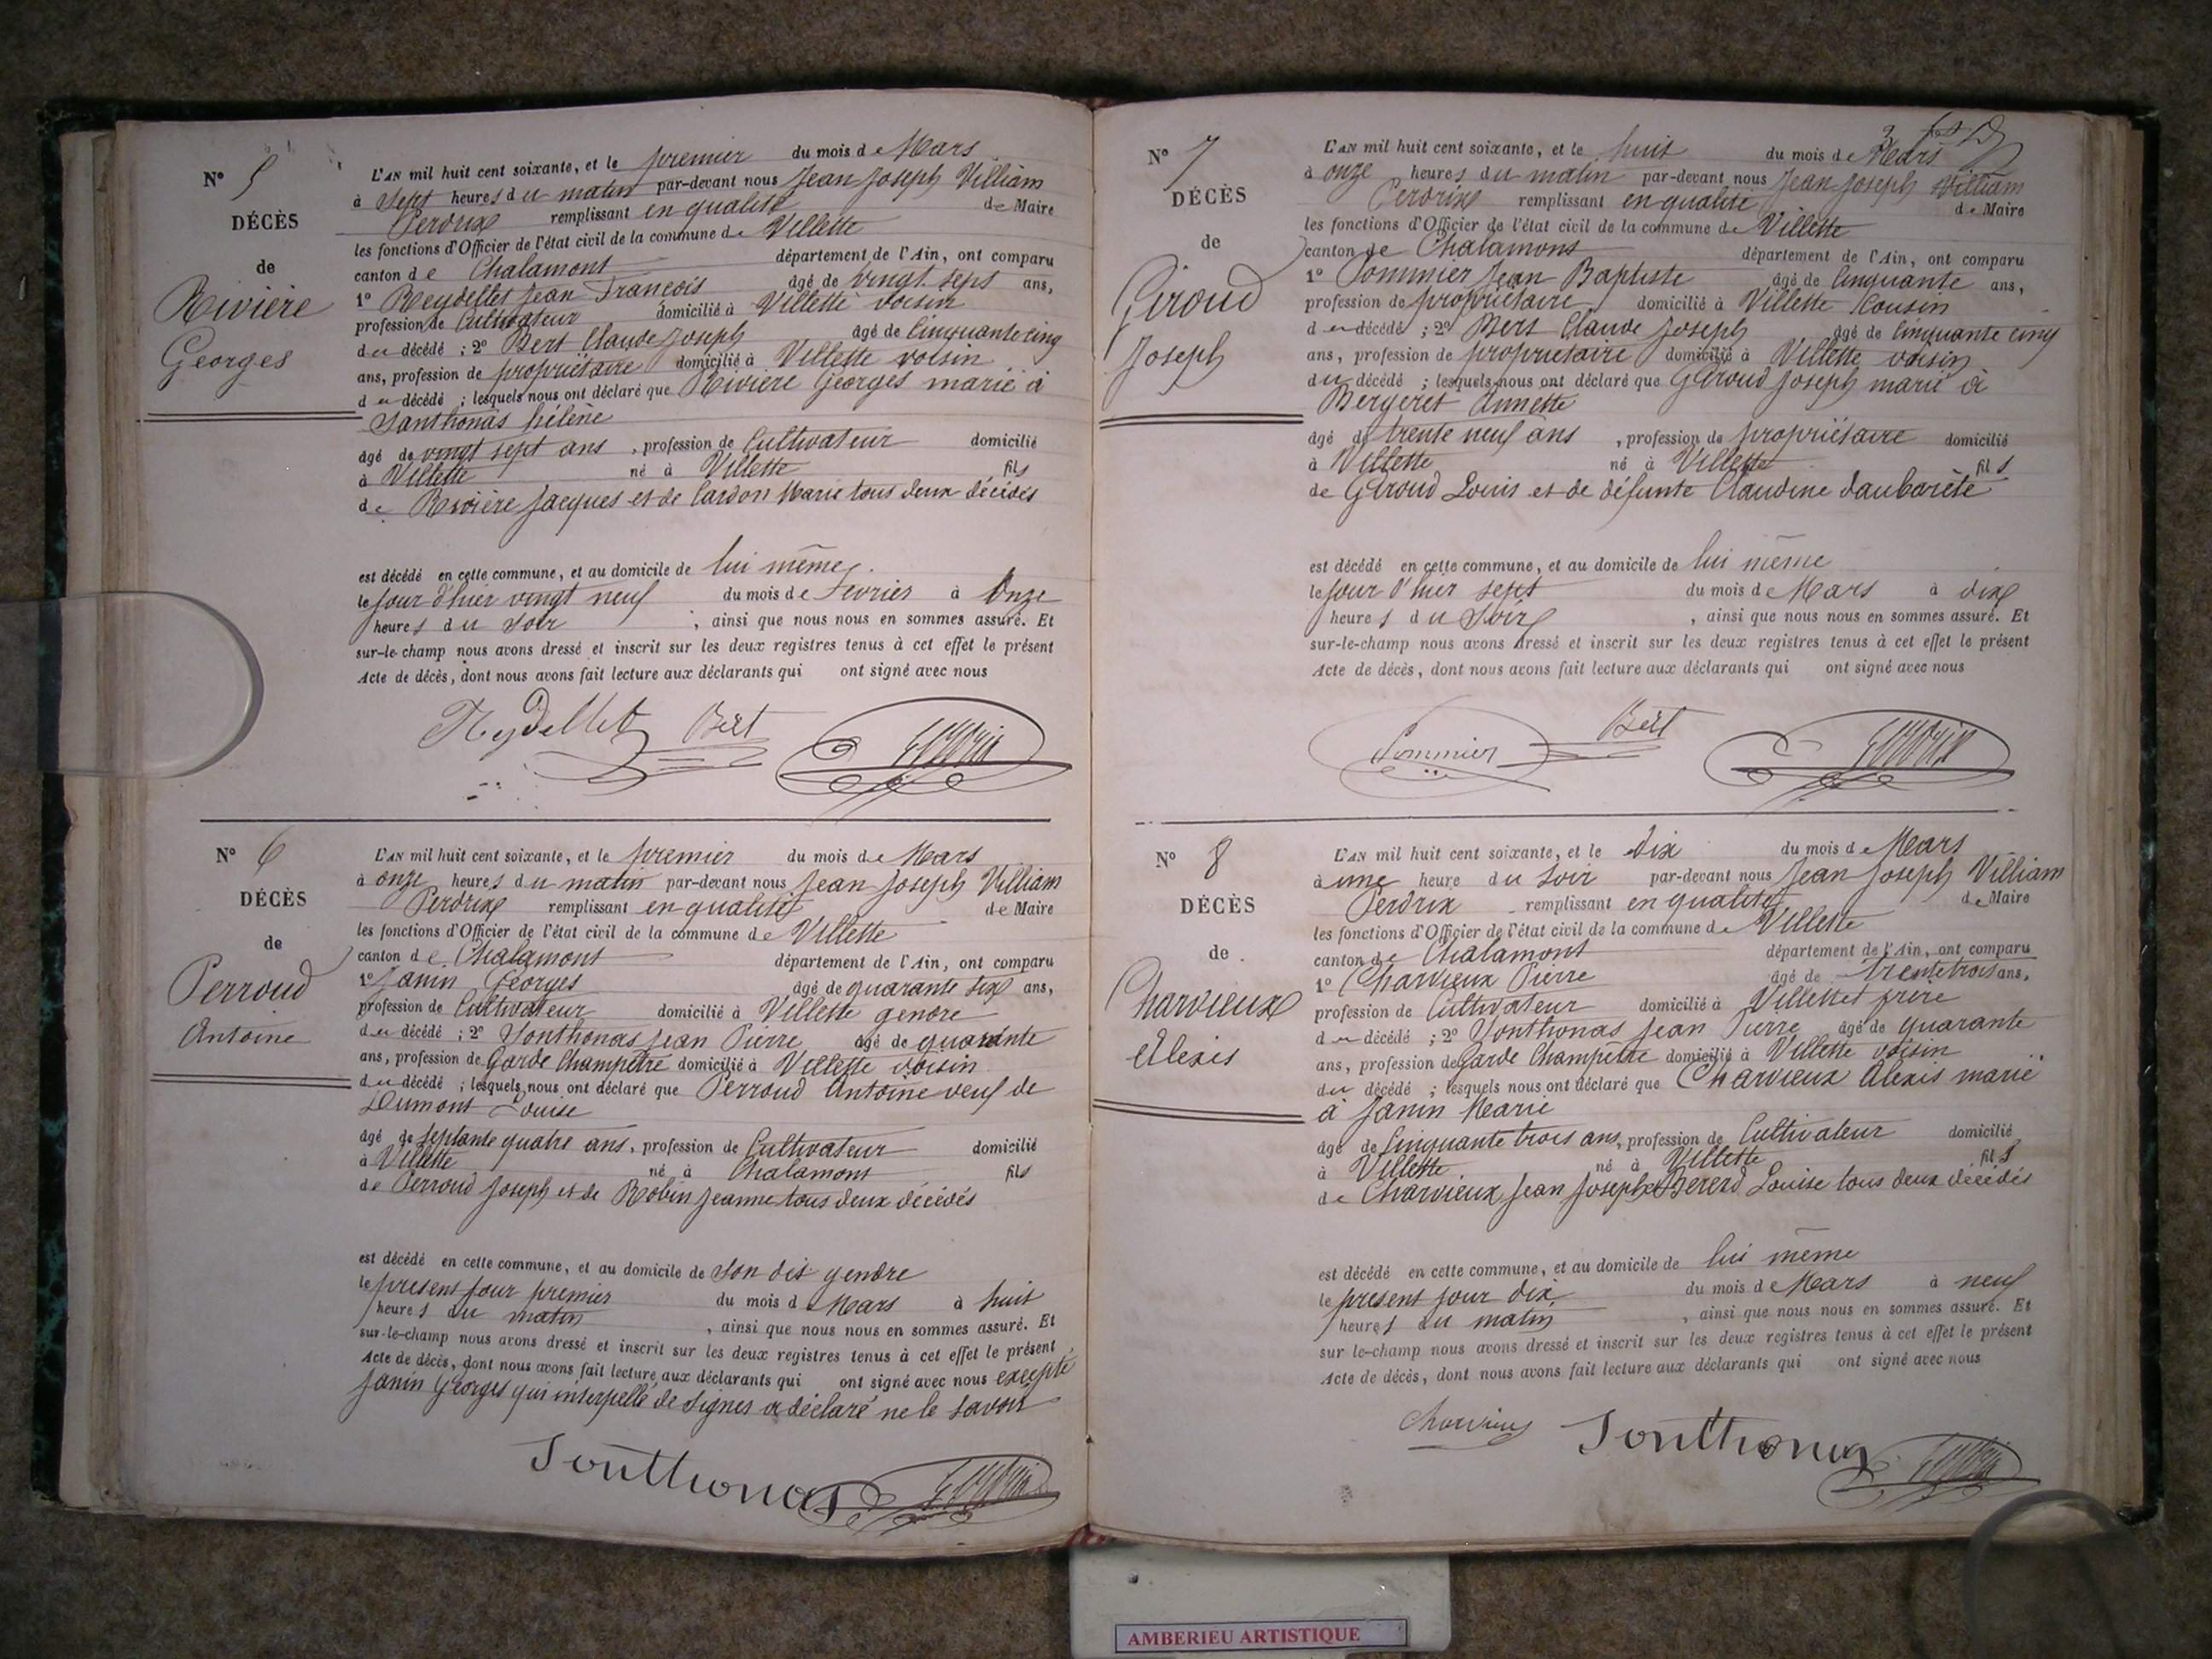 N° 5
DÉCÈS
de
Rivière
Georges
L'AN mil huit cent soixante, et le premier du mois de Mars
à Sept heures du matin par-devant nous Jean Joseph Villiam
Perdrix remplissant en qualité de Maire
les fonctions d'Officier de l'état civil de la commune de Villette
canton de Chalamont département de l'Ain, ont comparu
1° Reydellet Jean François âgé de vingt sept ans,
profession de Cultivateur domicilié à Villette voisin
du décédé ; 2° Bert Claude Joseph âgé de Cinquante cinq
ans, profession de propriétaire domicilié à Villette voisin
du décédé ; lesquels nous ont déclaré que Rivière Georges marié à
Santhonas hélène
âgé de vingt sept ans, profession de Cultivateur domicilié
à Villette né à Villette fils
de Rivière Jacques et de Cardon Marie tous deux décédés
est décédé en cette commune, et au domicile de lui même
le Jour d'hier vingt neuf du mois de Fevrier à Onze
heures du Soir, ainsi que nous nous en sommes assuré. Et
sur-le-champ nous avons dressé et inscrit sur les deux registres tenus à cet effet le présent
Acte de décès, dont nous avons fait lecture aux déclarants qui ont signé avec nous
Reydellet Bert Perdrix
N° 6
DÉCÈS
de
Perroud
Antoine
L'AN mil huit cent soixante, et le premier du mois de Mars
à onze heures du matin par-devant nous Jean Joseph Villiam
Perdrix remplissant en qualité de Maire
les fonctions d'Officier de l'état civil de la commune de Villette
canton de Chalamont département de l'Ain, ont comparu
1° Janin Georges âgé de quarante six ans,
profession de Cultivateur domicilié à Villette gendre
du décédé ; 2° Sonthonas Jean Pierre âgé de quarante
ans, profession de Garde Champêtre domicilié à Villette voisin
du décédé ; lesquels nous ont déclaré que Perroud Antoine veuf de
Dumont Louise
âgé de septante quatre ans, profession de Cultivateur domicilié
à Villette né à Chalamont fils
de Perroud Joseph et de Robin Jeanne tous deux décédés
est décédé en cette commune, et au domicile de son dit gendre
le present jour premier du mois de Mars à huit
heures du matin, ainsi que nous nous en sommes assuré. Et
sur-le-champ nous avons dressé et inscrit sur les deux registres tenus à cet effet le présent
Acte de décès, dont nous avons fait lecture aux déclarants qui ont signé avec nous excepté
Janin Georges qui interpellé de signer a déclaré ne le savoir
Sonthonas Perdrix
N° 7
DÉCÈS
de
Giroud
Joseph
L'AN mil huit cent soixante, et le huit du mois de Mars
à onze heures du matin par-devant nous Jean Joseph William
Perdrix remplissant en qualité de Maire
les fonctions d'Officier de l'état civil de la commune de Villette
canton de Chalamont département de l'Ain, ont comparu
1° Pommier Jean Baptiste âgé de Cinquante ans,
profession de propriétaire domicilié à Villette Cousin
du décédé ; 2° Bert Claude Joseph âgé de Cinquante cinq
ans, profession de propriétaire domicilié à Villette voisin
du décédé ; lesquels nous ont déclaré que Giroud Joseph marié à
Bergeret Annette
âgé de trente neuf ans, profession de propriétaire domicilié
à Villette né à Villette fils
de Giroud Louis et de défunte Claudine daubarète
est décédé en cette commune, et au domicile de lui même
le Jour d'hier sept du mois de Mars à dix
heures du Soir, ainsi que nous nous en sommes assuré. Et
sur-le-champ nous avons dressé et inscrit sur les deux registres tenus à cet effet le présent
Acte de décès, dont nous avons fait lecture aux déclarants qui ont signé avec nous
Pommier Bert Perdrix
N° 8
DÉCÈS
de
Charvieux
Alexis
L'AN mil huit cent soixante, et le dix du mois de Mars
à une heure du soir par-devant nous Jean Joseph Villiam
Perdrix remplissant en qualité de Maire
les fonctions d'Officier de l'état civil de la commune de Villette
canton de Chalamont département de l'Ain, ont comparu
1° Charvieux Pierre âgé de trente trois ans,
profession de Cultivateur domicilié à Villette frère
du décédé ; 2° Sonthonas Jean Pierre âgé de quarante
ans, profession de Garde Champêtre domicilié à Villette voisin
du décédé ; lesquels nous ont déclaré que Charvieux Alexis marié
à Janin Marie
âgé de Cinquante trois ans, profession de Cultivateur domicilié
à Villette né à Villette fils
de Charvieux Jean Joseph et Bererd Louise tous deux décédés
est décédé en cette commune, et au domicile de lui même
le present jour dix du mois de Mars à neuf
heures du matin, ainsi que nous nous en sommes assuré. Et
sur le-champ nous avons dressé et inscrit sur les deux registres tenus à cet effet le présent
Acte de décès, dont nous avons fait lecture aux déclarants qui ont signé avec nous
Charvieux Sonthonas Perdrix
AMBERIEU ARTISTIQUE